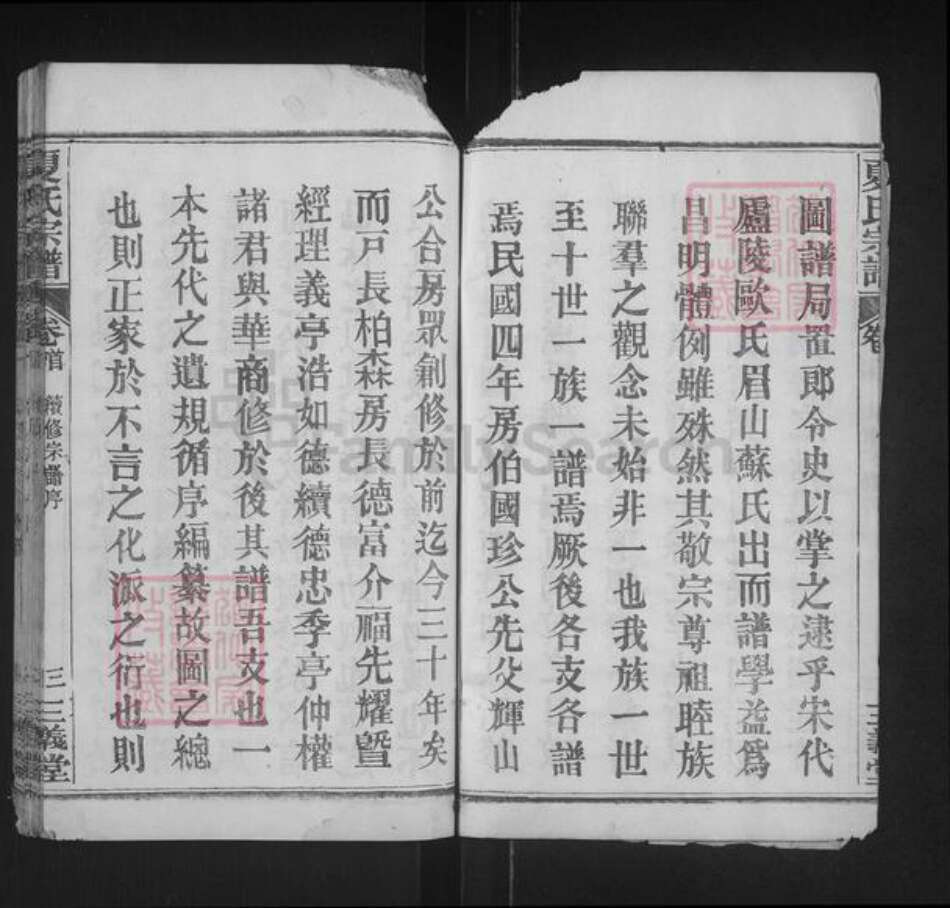 圖譜局置郎令史以掌之逮乎宋代
廬陵歐氏眉山蘇氏出而譜學益爲
昌明體例雖殊然其敬宗尊祖睦族
聯羣之觀念未始非一也我族一世
至十世一族一譜焉厥後各支各譜
焉民國四年房伯國珍公先父輝山
公合房眾創修於前迄今三十年矣
而戸長柏森房長德富介福先耀曁
經理義亭浩如德續德忠季亭仲權
諸君與華商修於後其譜吾支也一
本先代之遺規循序編纂故圖之總
也則正家於不言之化派之衍也則
夏氏宗譜 卷首 續修宗譜序 三 三義堂
夏氏宗譜 卷 三義堂
FamilySearch